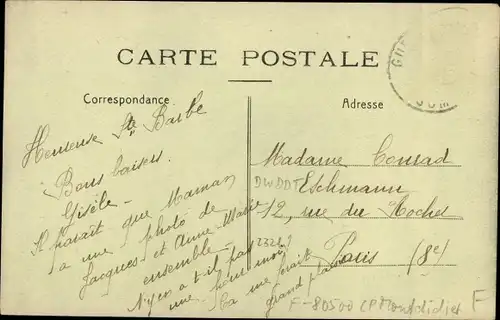 CARTE POSTALE
Correspondance
Heureuse Ste Barbe
Bons baisers
Gisèle -
Il paraît que Maman
a une photo de
Jacques et Anne-Marie
ensemble -
N'y en a t'il pas
une pour moi?
Ça me ferait
grand plaisir
Adresse
Madame Conrad
DWDDT
Eschmann
12, rue du Rocher
2322
Paris (8e)
F-80500 CP Montdidier F